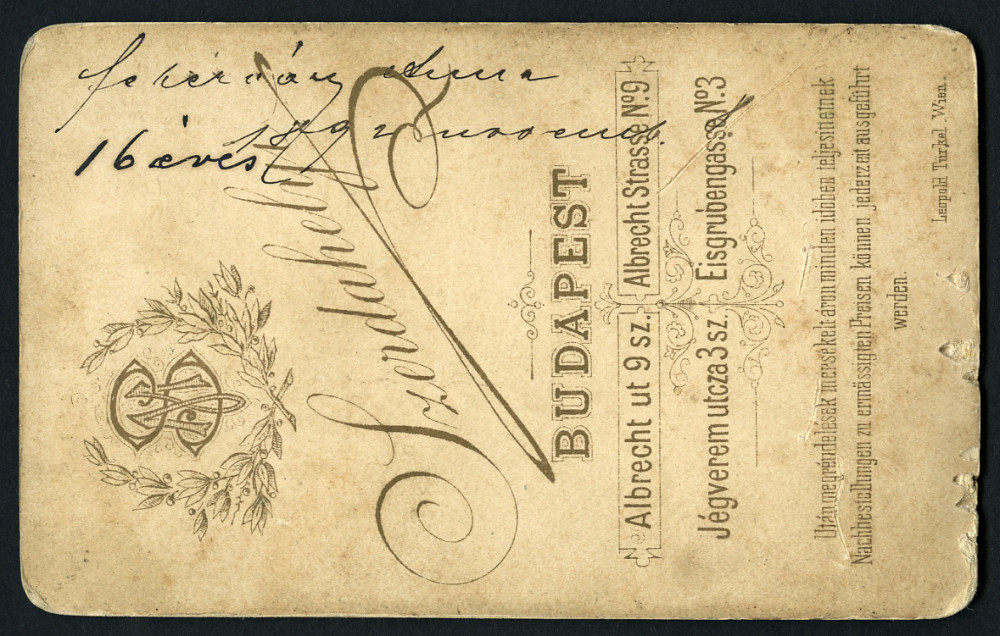 Fehérváry Anna
1892 November
16 éves
Szendahelyi
BUDAPEST
Albrecht ut 9 sz. Albrecht Strasse No. 9
Jégverem utcza 3 sz. Eisgrubengasse No. 3
Utánmegrendelések mersékelt áron minden időben teljesíttetnek
Nachbestellungen zu ermässigten Preisen können jederzeit ausgeführt
werden.
Leopold Türkel, Wien.